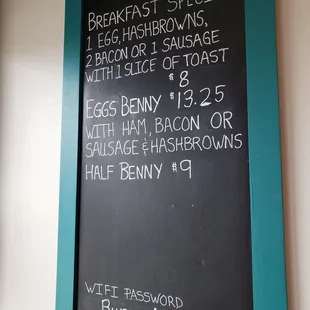 BREAKFAST
1 EGG, HASHBROWNS,
2 BACON OR 1 SAUSAGE
WITH 1 SLICE OF TOAST
$8
EGGS BENNY $13.25
WITH HAM, BACON OR
SAUSAGE & HASHBROWNS
HALF BENNY $9
WIFI PASSWORD